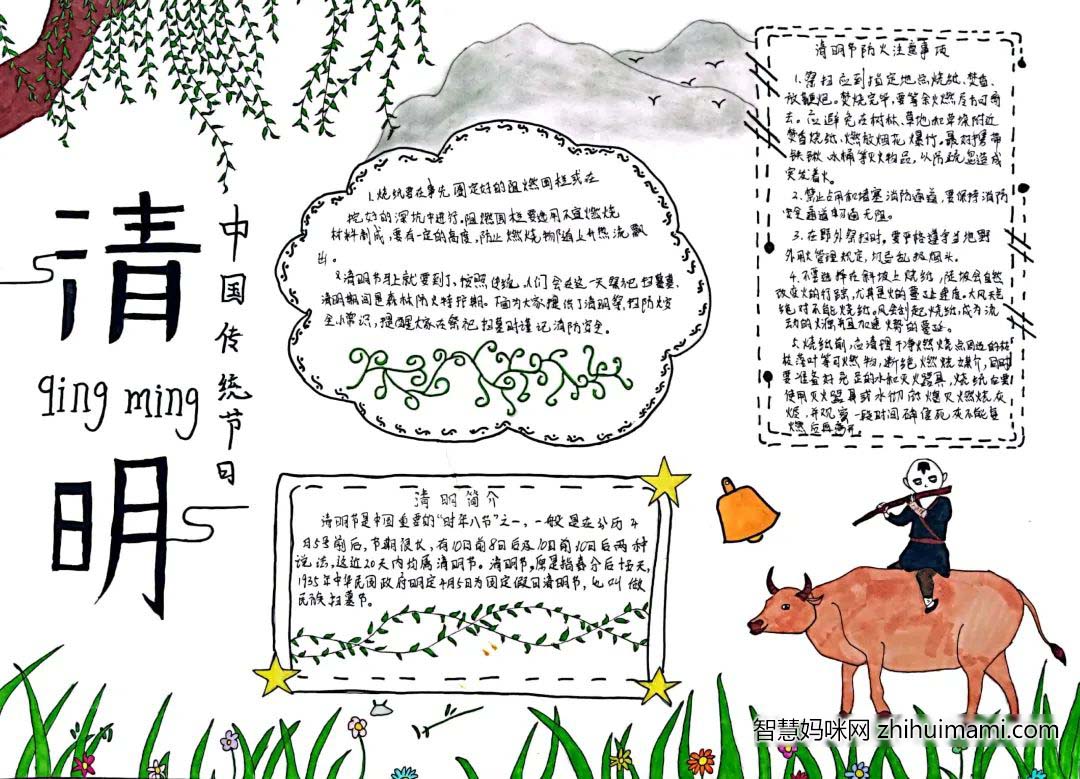 清
qing ming
明
中国传统节日
1.烧纸要在事先固定好的阻燃围栏或在
挖好的深坑中进行。阻燃围栏要选用不宜燃烧
材料制成,要有一定的高度,防止燃烧物随上升热流飘
出。
2.清明节马上就要到了,按照传统,人们会在这一天祭祀扫墓,
清明期间是森林防火特护期。下面为大家提供了清明祭扫防火安
全小常识,提醒大家在祭祀扫墓时谨记消防安全。
清明节防火注意事项
1.祭扫应到指定地点烧纸、焚香、
放鞭炮。焚烧完毕,要等余火燃尽方可离
去。应避免在树林、草地和草垛附近
焚香烧纸、燃放烟花爆竹。最好携带
铁锹、水桶等灭火物品,以防疏忽造成
突发着火。
2.禁止占用和堵塞消防通道,要保持消防
安全通道畅通无阻。
3.在野外祭扫时,要严格遵守当地野
外用火管理规定,切忌乱扔烟头。
4.不要选择在斜坡上烧纸,陡坡会自然
改变火的行踪,尤其是火的蔓延速度。大风天气
绝对不能烧纸。风会刮起烧纸,成为流
动的火源并且加速火势的蔓延。
5.烧纸前,应清理干净燃烧点周边的枯
枝落叶等可燃物,断绝燃烧媒介,同时
要准备好充足的水和灭火器具,烧纸后要
使用灭火器具或水彻底熄灭燃烧灰
烬,并观察一段时间确保死灰不能复
燃后再离开。
清明简介
清明节是中国重要的“时年八节”之一,一般是在公历4
月5号前后,节期很长,有10日前8日后及10日前10日后两种
说法,这近20天内均属清明节。清明节,原是指春分后十五天,
1935年中华民国政府明定4月5日为国定假日清明节,也叫做
民族扫墓节。
智慧妈咪网 zhihuimami.com